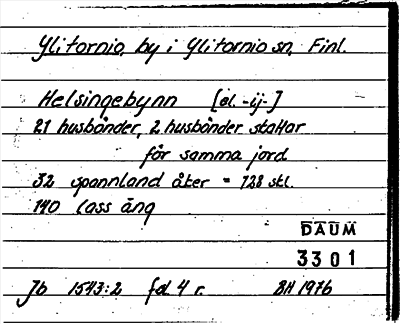 Ylitornio, by i Ylitornio sn, Finl.
Helsingebynn [el. -ij-]
21 husbönder, 2 husbönder skattar
för samma jord
32 spannland åker = 128 skl.
140 lass äng
DAUM
3301
Jb 1543:2 fol 4 r. BH 1976